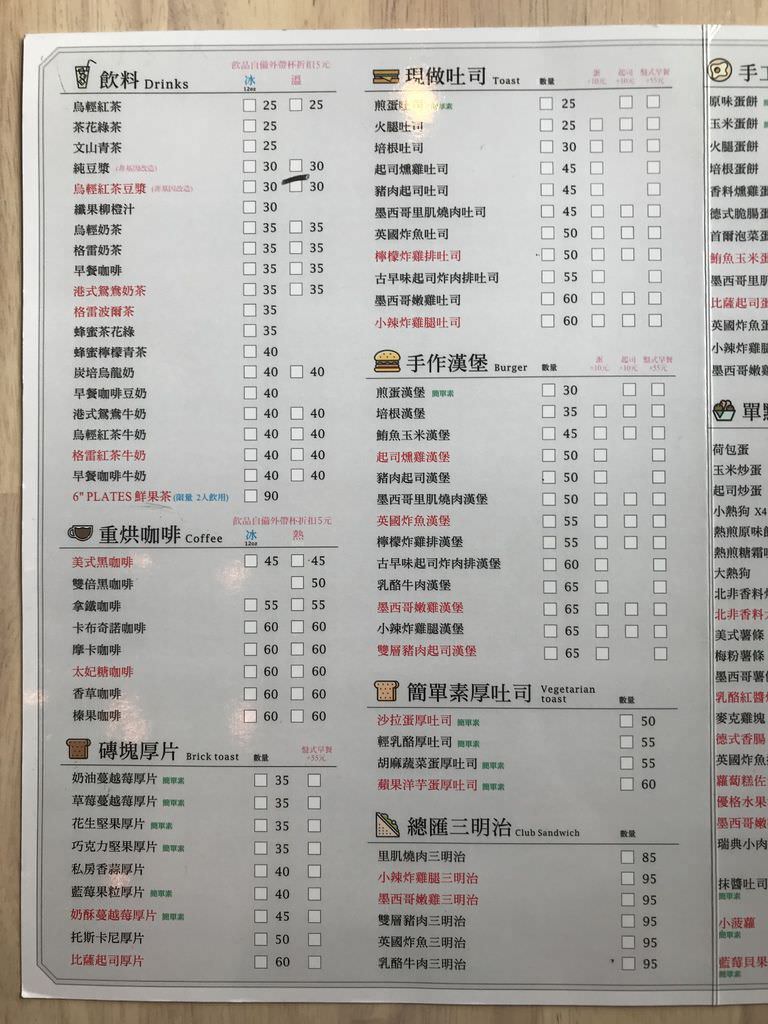 飲料 Drinks
飲品自備外帶杯折扣5元
冰 12oz 溫
烏輕紅茶 25 25
茶花綠茶 25
文山青茶 25
純豆漿 (非基因改造) 30 30
烏輕紅茶豆漿 (非基因改造) 30 30
纖果柳橙汁 30
烏輕奶茶 35 35
格雷奶茶 35 35
早餐咖啡 35 35
港式鴛鴦奶茶 35 35
格雷波爾茶 35
蜂蜜茶花綠 35
蜂蜜檸檬青茶 40
炭培烏龍奶 40 40
早餐咖啡豆奶 40
港式鴛鴦牛奶 40 40
烏輕紅茶牛奶 40 40
格雷紅茶牛奶 40 40
早餐咖啡牛奶 40 40
6" PLATES 鮮果茶 (限量 2人飲用) 90
重烘咖啡 Coffee
飲品自備外帶杯折扣5元
冰 12oz 熱
美式黑咖啡 45 45
雙倍黑咖啡 50
拿鐵咖啡 55 55
卡布奇諾咖啡 60 60
摩卡咖啡 60 60
太妃糖咖啡 60 60
香草咖啡 60 60
榛果咖啡 60 60
磚塊厚片 Brick toast 數量 盤式早餐 +55元
奶油蔓越莓厚片 簡單素 35
草莓蔓越莓厚片 簡單素 35
花生堅果厚片 簡單素 35
巧克力堅果厚片 簡單素 35
私房香蒜厚片 40
藍莓果粒厚片 簡單素 40
奶酥蔓越莓厚片 簡單素 45
托斯卡尼厚片 50
比薩起司厚片 60
現做吐司 Toast 數量 蛋 +10元 起司 +10元 盤式早餐 +55元
煎蛋吐司 簡單素 25
火腿吐司 25
培根吐司 30
起司燻雞吐司 45
豬肉起司吐司 45
墨西哥里肌燒肉吐司 45
英國炸魚吐司 50
檸檬炸雞排吐司 50
古早味起司炸肉排吐司 55
墨西哥嫩雞吐司 60
小辣炸雞腿吐司 60
手作漢堡 Burger 數量 蛋 +10元 起司 +10元 盤式早餐 +55元
煎蛋漢堡 簡單素 30
培根漢堡 35
鮪魚玉米漢堡 45
起司燻雞漢堡 50
豬肉起司漢堡 50
墨西哥里肌燒肉漢堡 50
英國炸魚漢堡 55
檸檬炸雞排漢堡 55
古早味起司炸肉排漢堡 60
乳酪牛肉漢堡 65
墨西哥嫩雞漢堡 65
小辣炸雞腿漢堡 65
雙層豬肉起司漢堡 65
簡單素厚吐司 Vegetarian toast 數量
沙拉蛋厚吐司 簡單素 50
輕乳酪厚吐司 簡單素 55
胡麻蔬菜蛋厚吐司 簡單素 55
蘋果洋芋蛋厚吐司 簡單素 60
總匯三明治 Club Sandwich 數量
里肌燒肉三明治 85
小辣炸雞腿三明治 95
墨西哥嫩雞三明治 95
雙層豬肉三明治 95
英國炸魚三明治 95
乳酪牛肉三明治 95
手工
原味蛋餅
玉米蛋餅
火腿蛋餅
培根蛋餅
香料燻雞蛋
德式脆腸蛋
首爾泡菜蛋
鮪魚玉米蛋
墨西哥里肌
比薩起司蛋
英國炸魚蛋
小辣炸雞
墨西哥嫩雞
單點
荷包蛋
玉米炒蛋
起司炒蛋
小熱狗 X4
熱煎原味
熱煎糖霜
大熱狗
北非香料
北非香料
美式薯條
梅粉薯條
墨西哥薯
乳酪紅醬
麥克雞塊
德式香腸
英國炸魚
蘿蔔糕佐
優格水果
墨西哥嫩
瑞典小肉
抹醬吐司
簡單素
小菠蘿
簡單素
藍莓貝果
簡單素